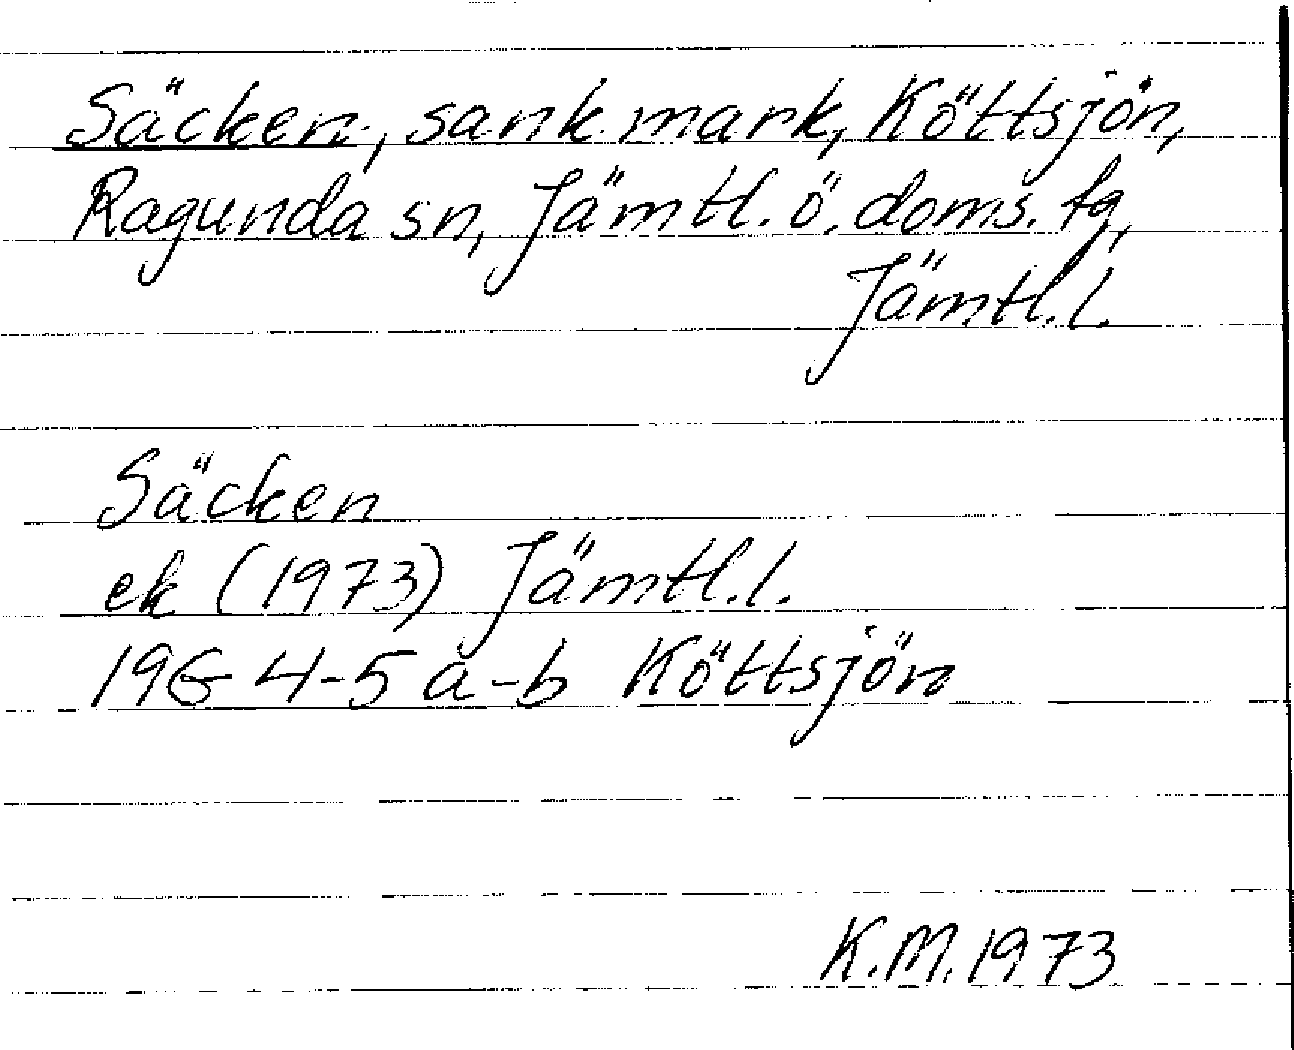 Säcken, sank mark, Köttsjön,
Ragunda sn, Jämtl. ö. doms. tg,
Jämtl. l.
Säcken
ek (1973) Jämtl. l.
19G 4-5 a-b Köttsjön
K.M. 1973